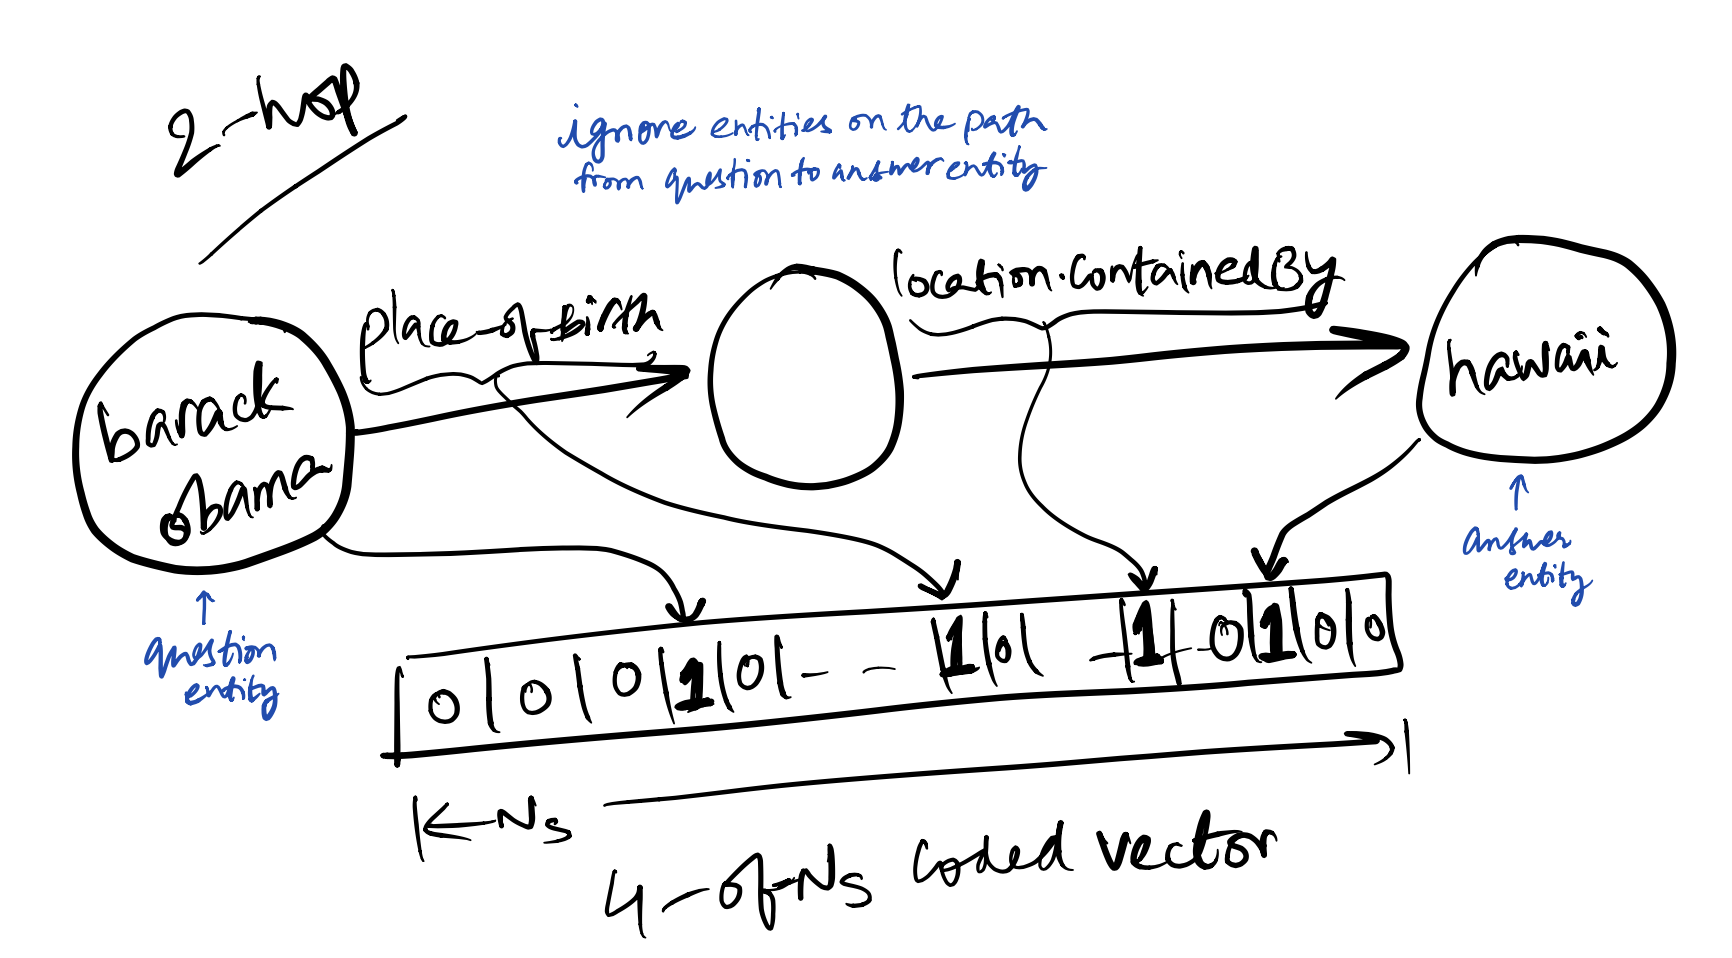 2-hop
ignore entities on the path
from question to answer entity
place-of-birth
location.containedBy
barack
obama
hawaii
question
entity
answer
entity
0 0 0 1 0 -- - 1 0 - 1 - - 0 1 0 0
Ns
4-of-Ns coded vector